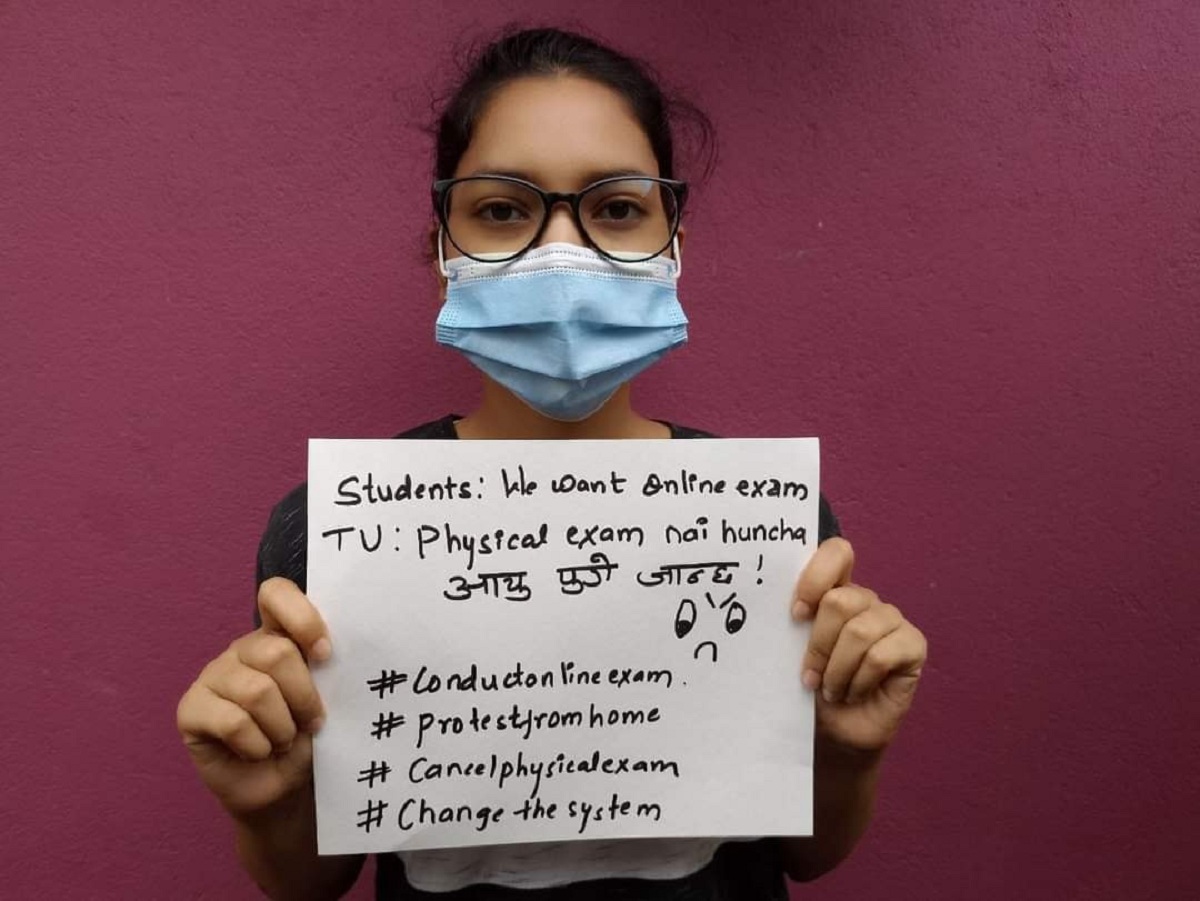 Students: We want online exam
TU: Physical exam nai huncha
आयु पुगे जान्छ !
#Conductonlineexam.
#Protestfromhome
# Cancelphysicalexam
# Change the system